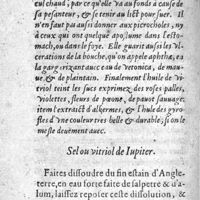 eul chaud, par ce qu'elle va au fonds à cause de
sa pesanteur, & se tenir au lict pour suer. Il
n'en faut pas aussi donner aux picrocholes, ny
à ceux qui ont quelque apostume dans l'esto-
mach, ou dans le foye. Elle guarit aussi les vl-
cerations de la bouche, qu'on appelle aphthæ, en
la gargarizant auec eau de vetonica, de mau-
ue, & de plantain. Finalement l'huile de vi-
triol teint les sucs exprimez des roses palles,
violettes, fleurs de pæone, de pauot sauuage:
item l'extraict d'alkermes, & l'huile des gyro-
fles d'vne couleur tres belle & durable, si on le
mesle deuëment auec.
Sel ou vitriol de Iupiter.
Faites dissoudre du fin estain d'Angle-
terre, en eau forte faite de salpetre & d'a-
lum, laissez reposer ceste dissolution, &